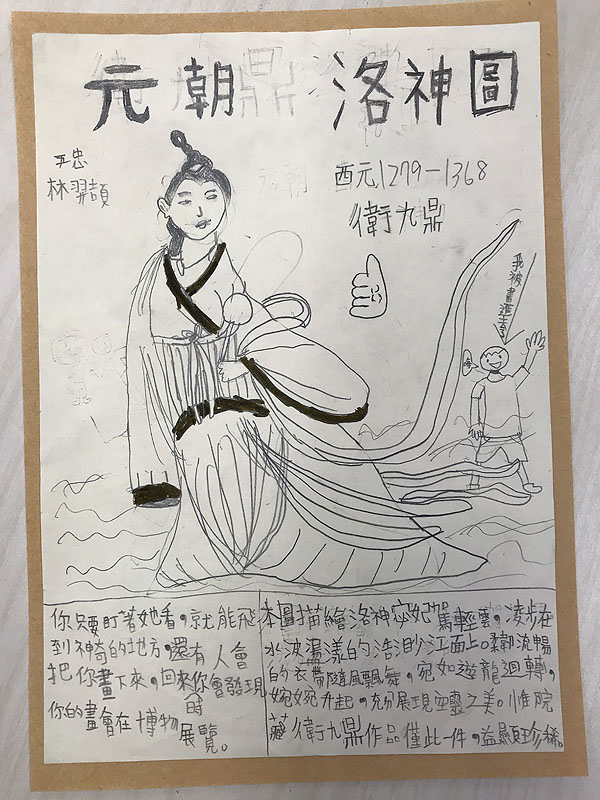 元朝 洛神圖
五忠
林羿頡
西元1279-1368
衛九鼎
我被畫進去
你只要盯著她看，就能飛
到神奇的地方，還有人會
把你畫下來，回來你會發現
你的畫會在博物館
展覽。
本圖描繪洛神宓妃駕輕雲，凌步在
水波盪漾的浩渺江面上。柔韌流暢
的衣帶隨風飄旋，宛如遊龍迴轉，
婉婉升起，充份展現空靈之美。惟院
藏衛九鼎作品僅此一件，益顯珍稀。